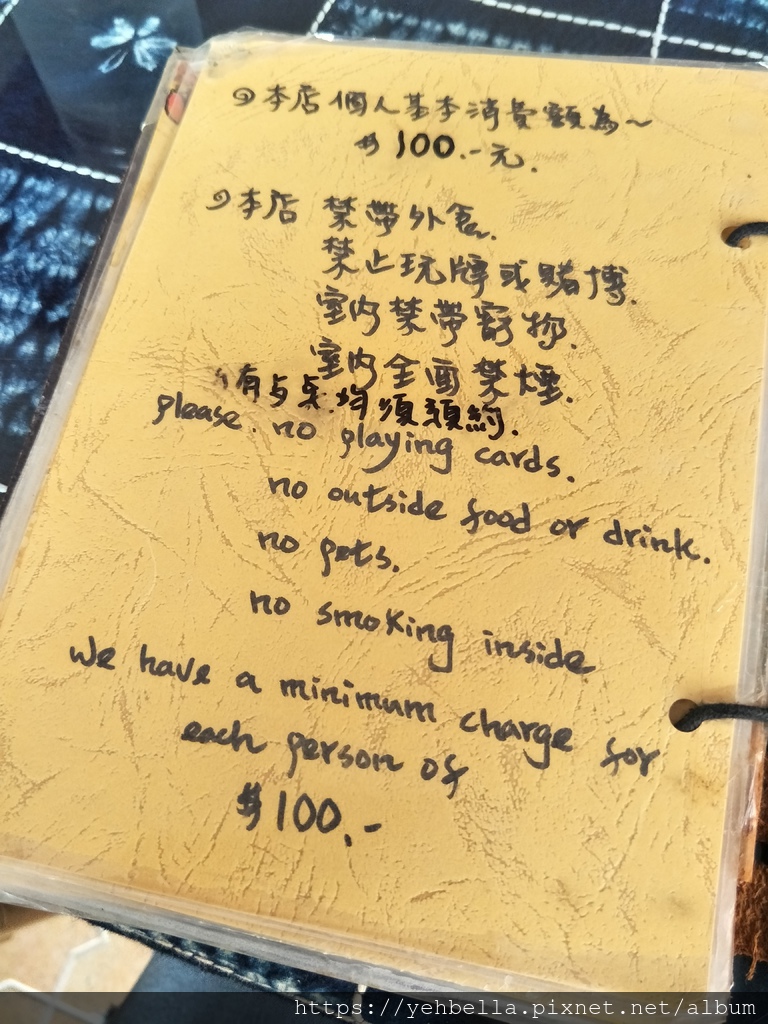 本店個人基本消費額為~
$100.-元.
本店 禁帶外食.
禁止玩牌或賭博.
室內禁帶寵物.
室內全面禁煙.
有 均須預約.
please. no playing cards.
no outside food or drink.
no pets.
no smoking inside
We have a minimum charge for
each person of
$100.-
https://yehbella.pixnet.net/album